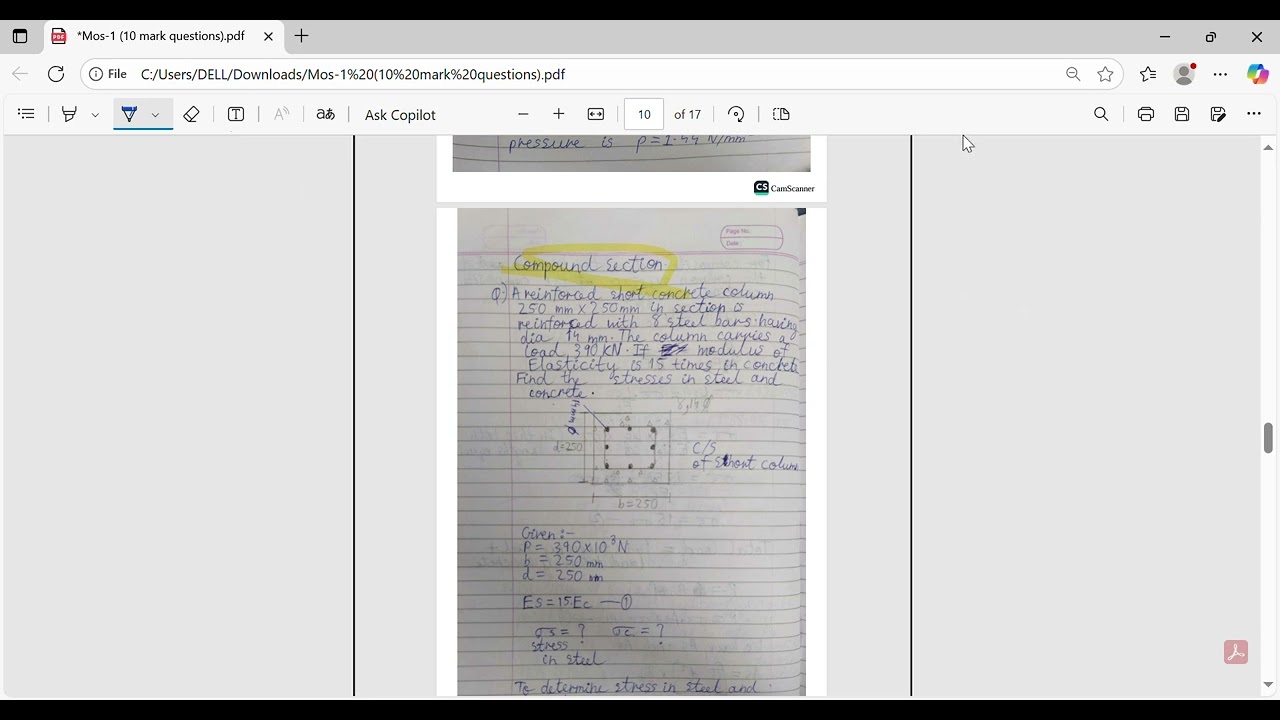 *Mos-1 (10 mark questions).pdf
File
C:/Users/DELL/Downloads/Mos-1%20(10%20mark%20questions).pdf
Ask Copilot
10 of 17
pressure is P=1.44 N/mm
CS CamScanner
Page No.
Date:
Compound section
Q) A reinforced short concrete column
250 mm x 250mm in section is
reinforced with 8 steel bars having
dia 14 mm. The column carries a
load 390 KN. If modulus of
Elasticity is 15 times in concrete
Find the stresses in steel and
concrete.
14mm φ
8,14φ
d=250
C/S
of short column
b=250
Given:-
P = 390x10³N
b = 250 mm
d = 250 mm
Es=15.Ec —①
σs = ? σc = ?
stress
in steel
To determine stress in steel and